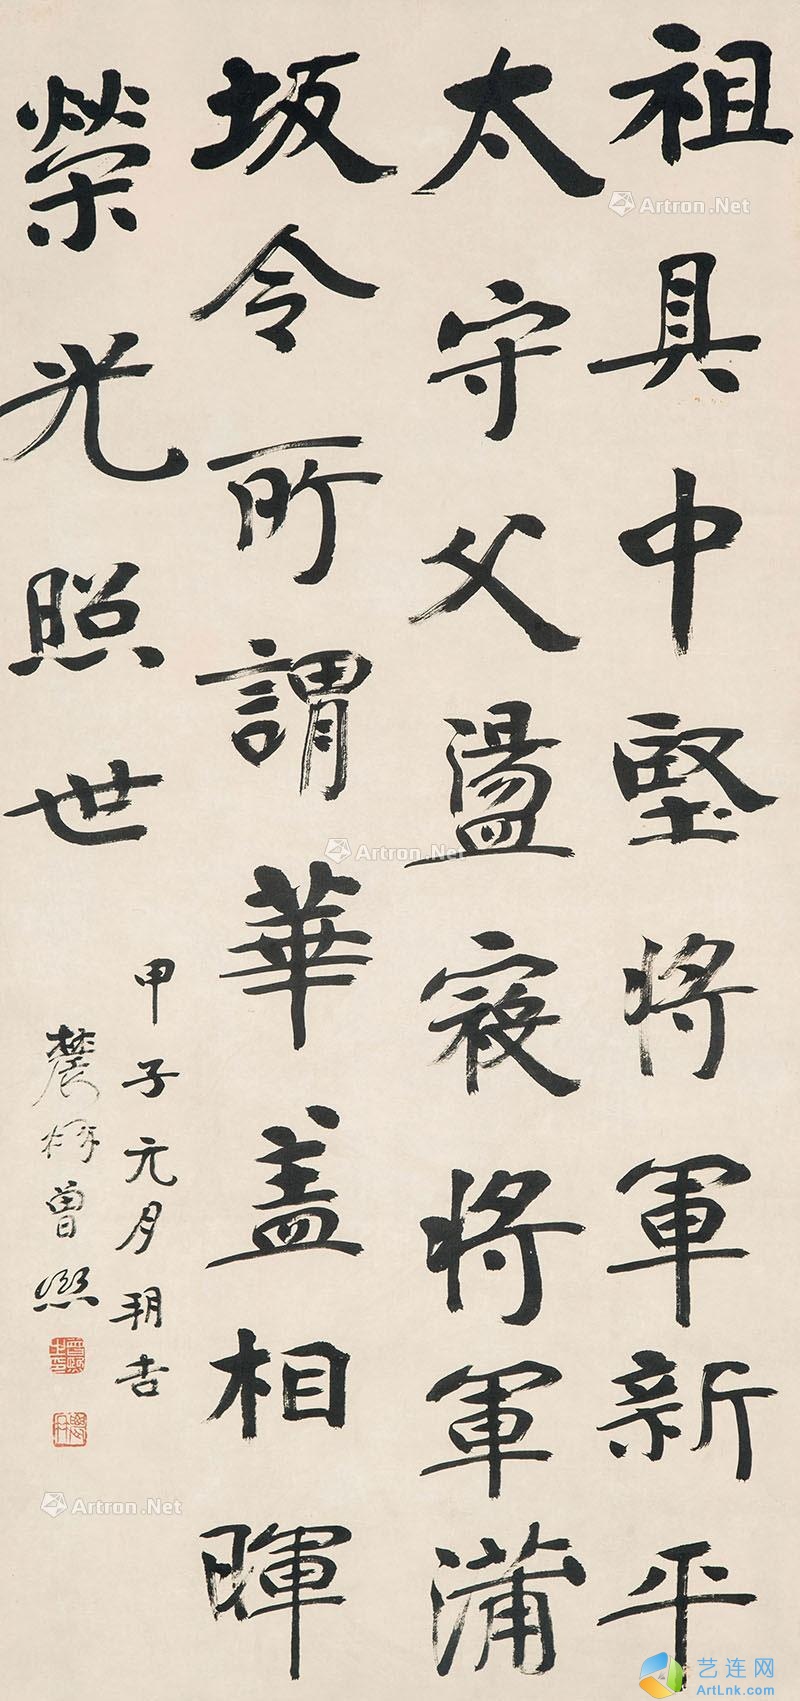 祖具中堅将軍新平
太守父盪寇将軍蒲
坂令所謂華盖相暉
榮光照世
甲子元月玥吉
農髯曾熙
Artron.Net
Artron.Net
Artron.Net
艺连网
ArtLnk.com